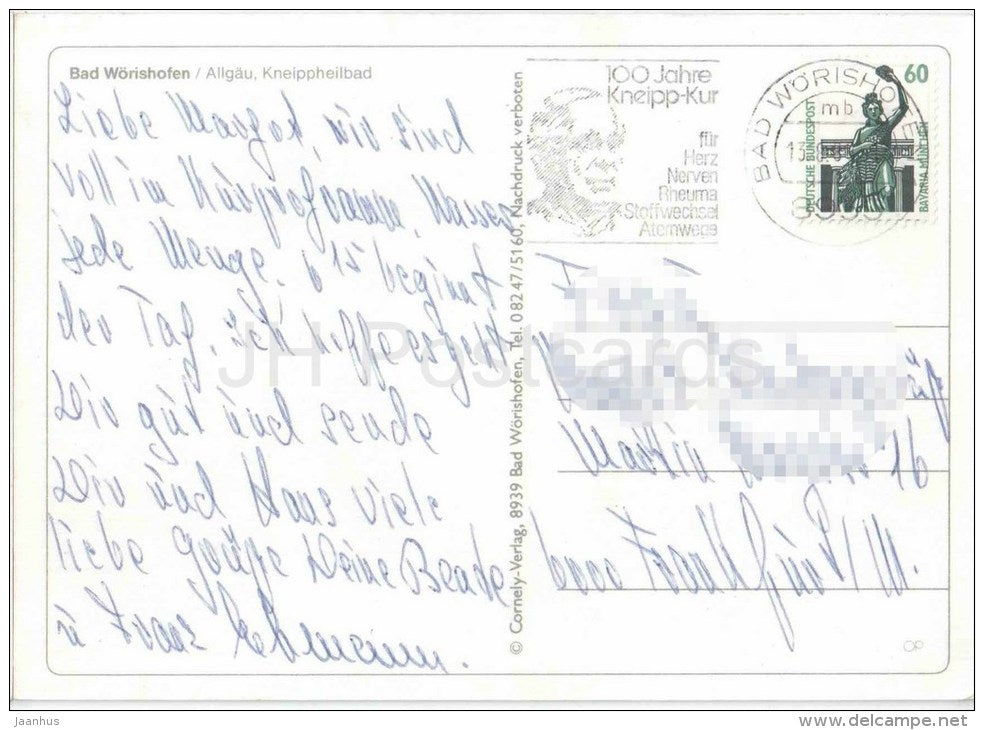 Bad Wörishofen / Allgäu, Kneippheilbad
Liebe Margot, wir sind
voll im Kurprogramm, Wasser
jede Menge. 6 15 beginnt
der Tag. Ich hoffe es geht
Dir gut und sende
Dir und Hans viele
liebe Grüße Deine Beate
u Franz Lehmann.
© Cornely-Verlag, 8939 Bad Wörishofen, Tel. 0 82 47/51 60, Nachdruck verboten
100 Jahre
Kneipp-Kur
für
Herz
Nerven
Rheuma
Stoffwechsel
Atemwege
BAD WÖRISHOFEN
mb
60
DEUTSCHE BUNDESPOST
BAVARIA MÜNCHEN
16
6000 Frankfurt/M.
JH Postcards
Jaanhus
www.delcampe.net